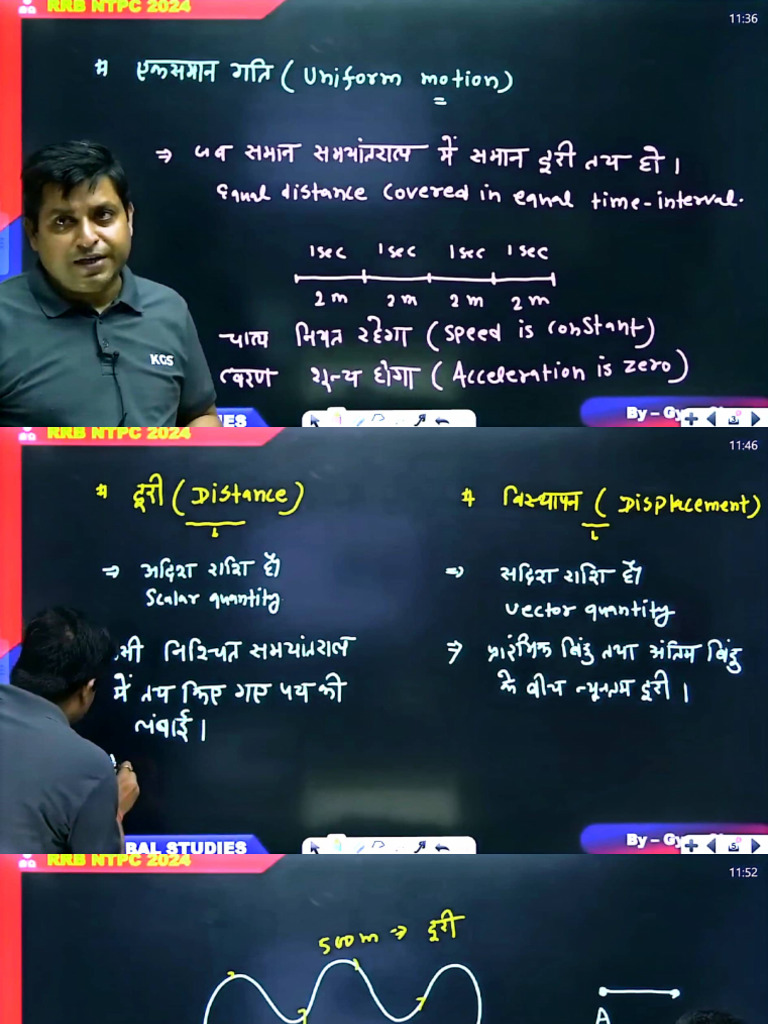 RRB NTPC 2024
11:36
# एकसमान गति (Uniform motion)
⇒ जब समान समयांतराल में समान दूरी तय हो।
Equal distance covered in equal time-interval.
1sec 1sec 1sec 1sec
2m 2m 2m 2m
चाल नियत रहेगा (Speed is constant)
त्वरण शून्य होगा (Acceleration is zero)
KGS
By – Gy
RRB NTPC 2024
11:46
# दूरी (Distance)
# विस्थापन (Displacement)
⇒ अदिश राशि है।
Scalar quantity
⇒ सदिश राशि है।
Vector quantity
निश्चित समयांतराल
में तय किए गए पथ की
लंबाई।
⇒ प्रारंभिक बिंदु तथा अंतिम बिंदु
के बीच न्यूनतम दूरी।
BAL STUDIES
By – Gy
RRB NTPC 2024
11:52
500m ⇒ दूरी
A